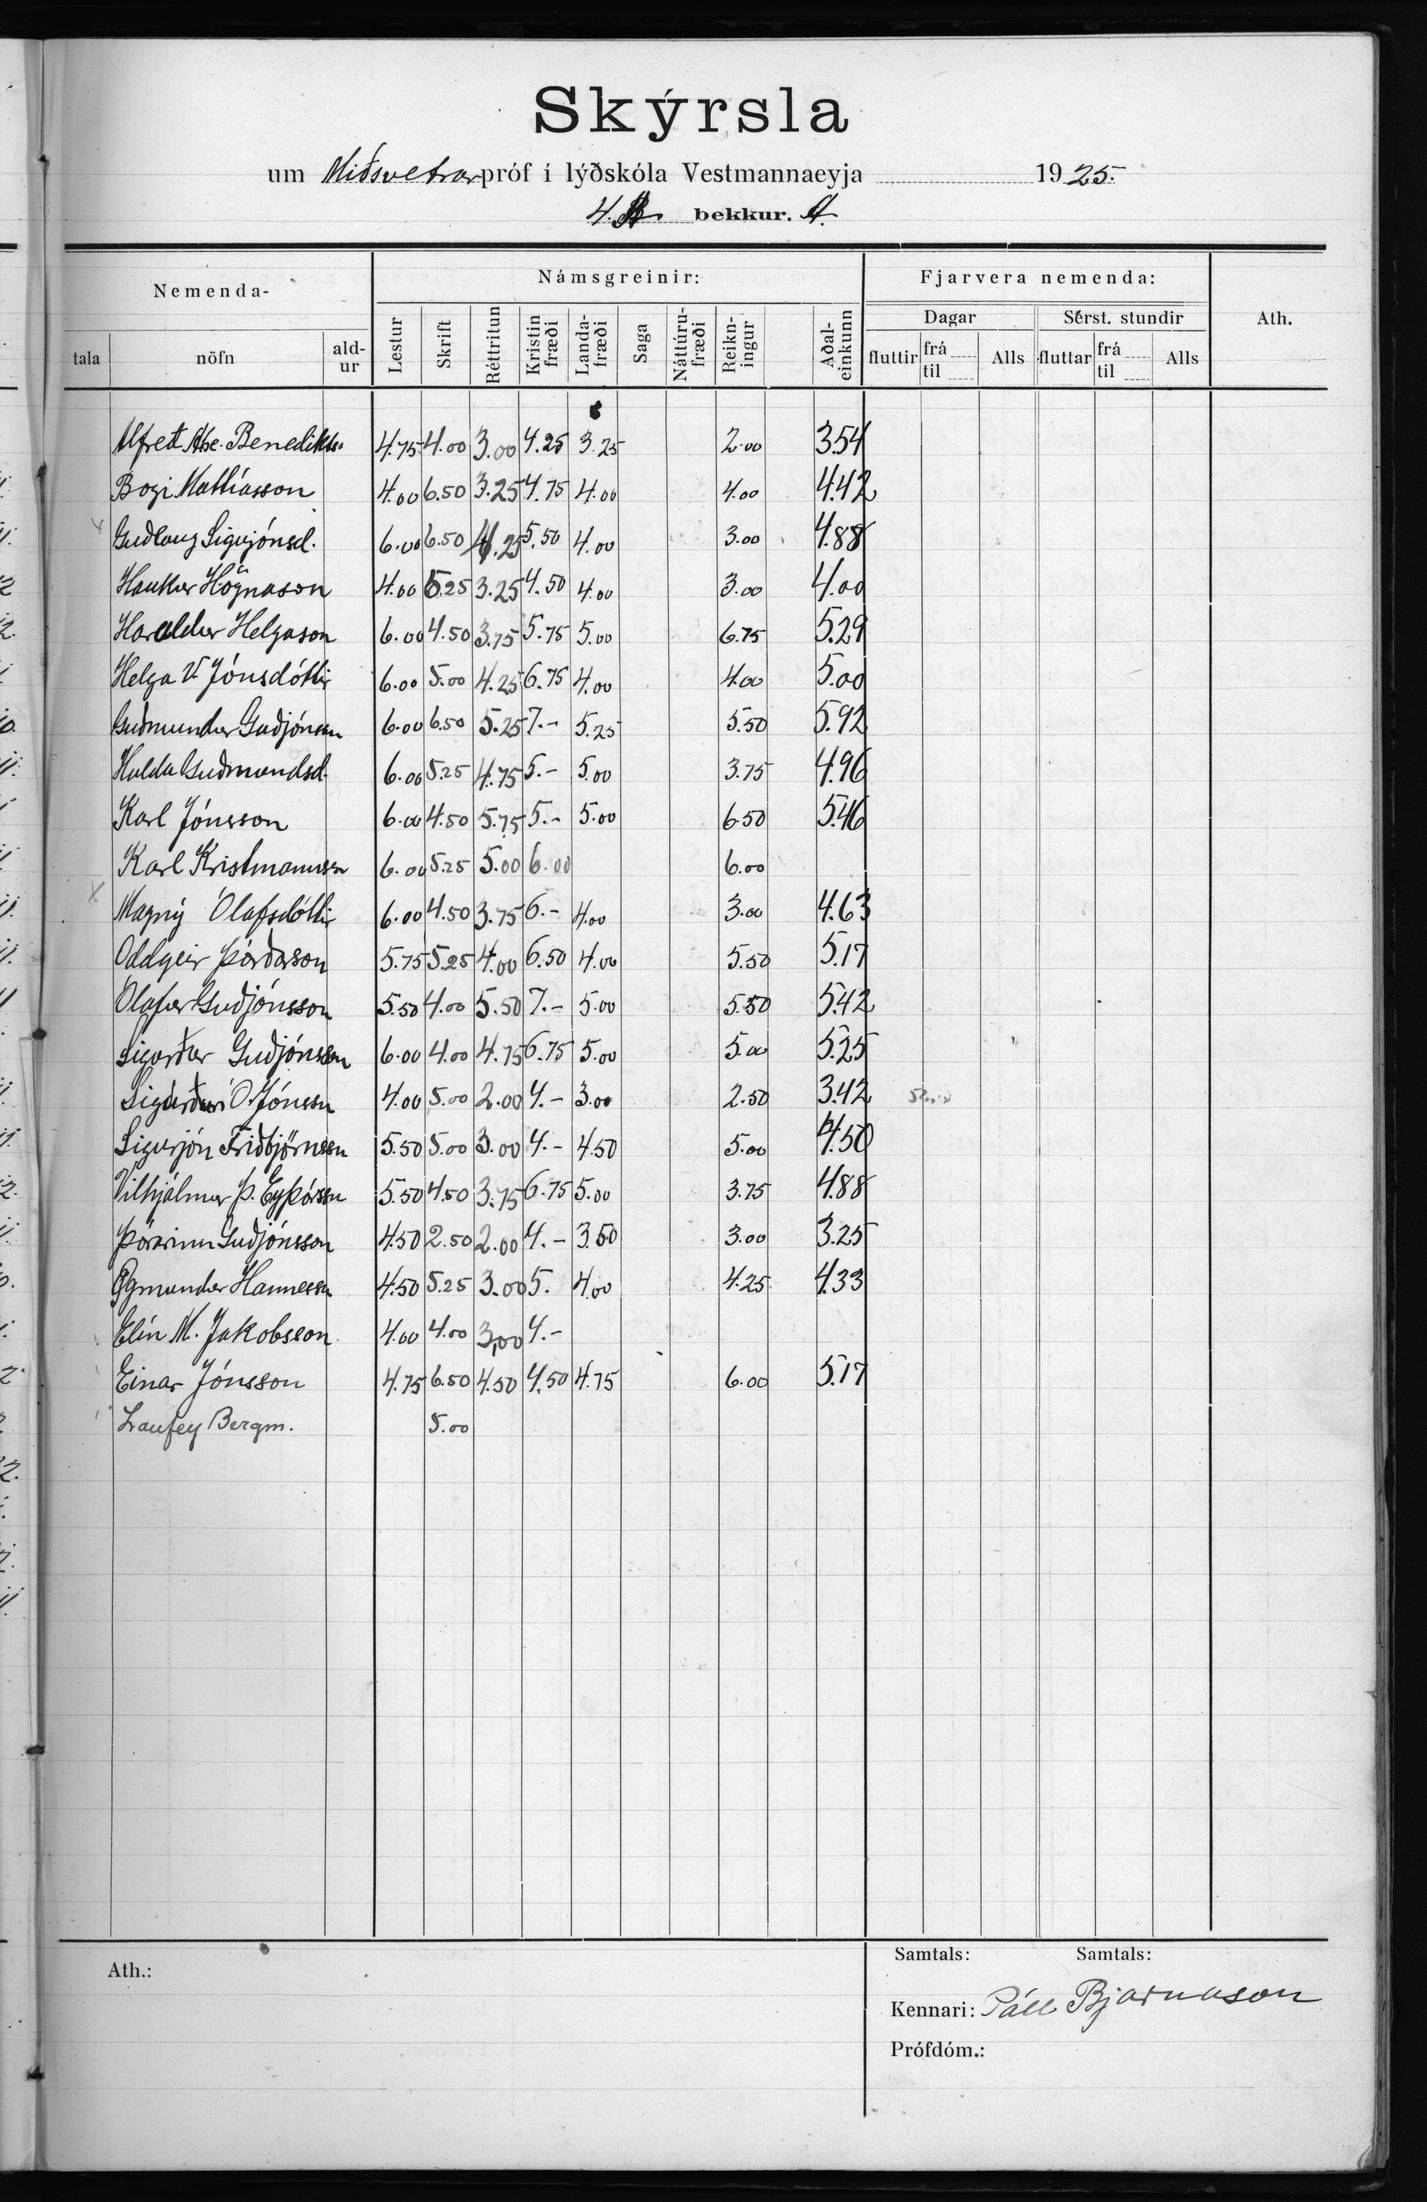 Skýrsla
um Miðsvetrarpróf í lýðskóla Vestmannaeyja 1925.
4. bekkur. A.
Nemenda- Námsgreinir: Fjarvera nemenda: Ath.
tala nöfn ald-ur Lestur Skrift Réttritun Kristin fræði Landa-fræði Saga Náttúru-fræði Reikn-ingur Aðal-einkunn Dagar Sérst. stundir
fluttir frá til Alls fluttar frá til Alls
Alfreð Benediktss. 4.75 4.00 3.00 4.25 3.25 2.00 3.54
Bogi Mattíasson 4.00 6.50 3.25 4.75 4.00 4.00 4.42
Guðlaug Sigurjónsd. 6.00 6.50 4.25 5.50 4.00 3.00 4.88
Haukur Högnason 4.00 5.25 3.25 4.50 4.00 3.00 4.00
Haraldur Helgason 6.00 4.50 3.75 5.75 5.00 6.75 5.29
Helga V. Jónsdóttir 6.00 5.00 4.25 6.75 4.00 4.00 5.00
Guðmundur Guðjónsson 6.00 6.50 5.25 7.- 5.25 5.50 5.92
Hulda Guðmundsd. 6.00 5.25 4.75 5.- 5.00 3.75 4.96
Karl Jónsson 6.00 4.50 5.75 5.- 5.00 6.50 5.46
Karl Kristmannsson 6.00 5.25 5.00 6.00 6.00
Magný Ólafsdóttir 6.00 4.50 3.75 6.- 4.00 3.00 4.63
Oddgeir Þórðarson 5.75 5.25 4.00 6.50 4.00 5.50 5.17
Ólafur Guðjónsson 5.50 4.00 5.50 7.- 5.00 5.50 5.42
Sigurður Guðjónsson 6.00 4.00 4.75 6.75 5.00 5.00 5.25
Sigurður Ó. Jónssn 4.00 5.00 2.00 4.- 3.00 2.50 3.42
Sigurjón Friðbjörnssn 5.50 5.00 3.00 4.- 4.50 5.00 4.50
Vilhjálmur Þ. Eyþórssn 5.50 4.50 3.75 6.75 5.00 3.75 4.88
Þórarinn Guðjónsson 4.50 2.50 2.00 4.- 3.50 3.00 3.25
Ögmundur Hannessn 4.50 5.25 3.00 5. 4.00 4.25 4.33
Elín M. Jakobsson 4.00 4.00 3,00 4.-
Einar Jónsson 4.75 6.50 4.50 4.50 4.75 6.00 5.17
Laufey Bergm. 5.00
Samtals: Samtals:
Ath.:
Kennari: Páll Bjarnason
Prófdóm.: